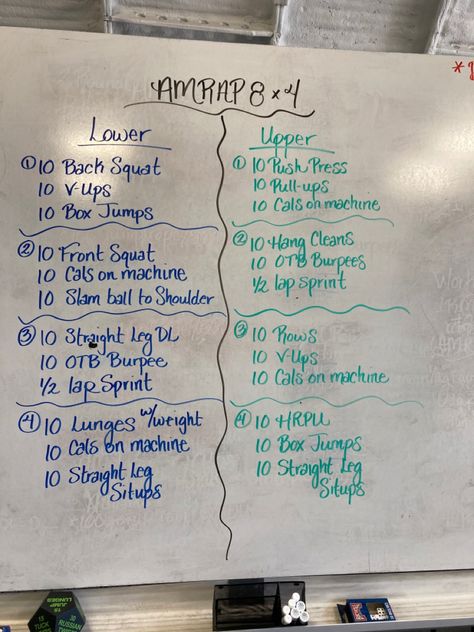 AMRAP 8 x 4
Lower
① 10 Back Squat
10 V-Ups
10 Box Jumps
② 10 Front Squat
10 Cals on machine
10 Slam ball to Shoulder
③ 10 Straight Leg DL
10 OTB Burpee
1/2 lap Sprint
④ 10 Lunges w/weight
10 Cals on machine
10 Straight Leg
Situps
Upper
① 10 Push Press
10 Pull-ups
10 Cals on machine
② 10 Hang Cleans
10 OTB Burpees
1/2 lap Sprint
③ 10 Rows
10 V-Ups
10 Cals on machine
④ 10 HRPU
10 Box Jumps
10 Straight Leg
Situps
15
JUMP
LUNGES
15
TUCK
30
RUSSIAN